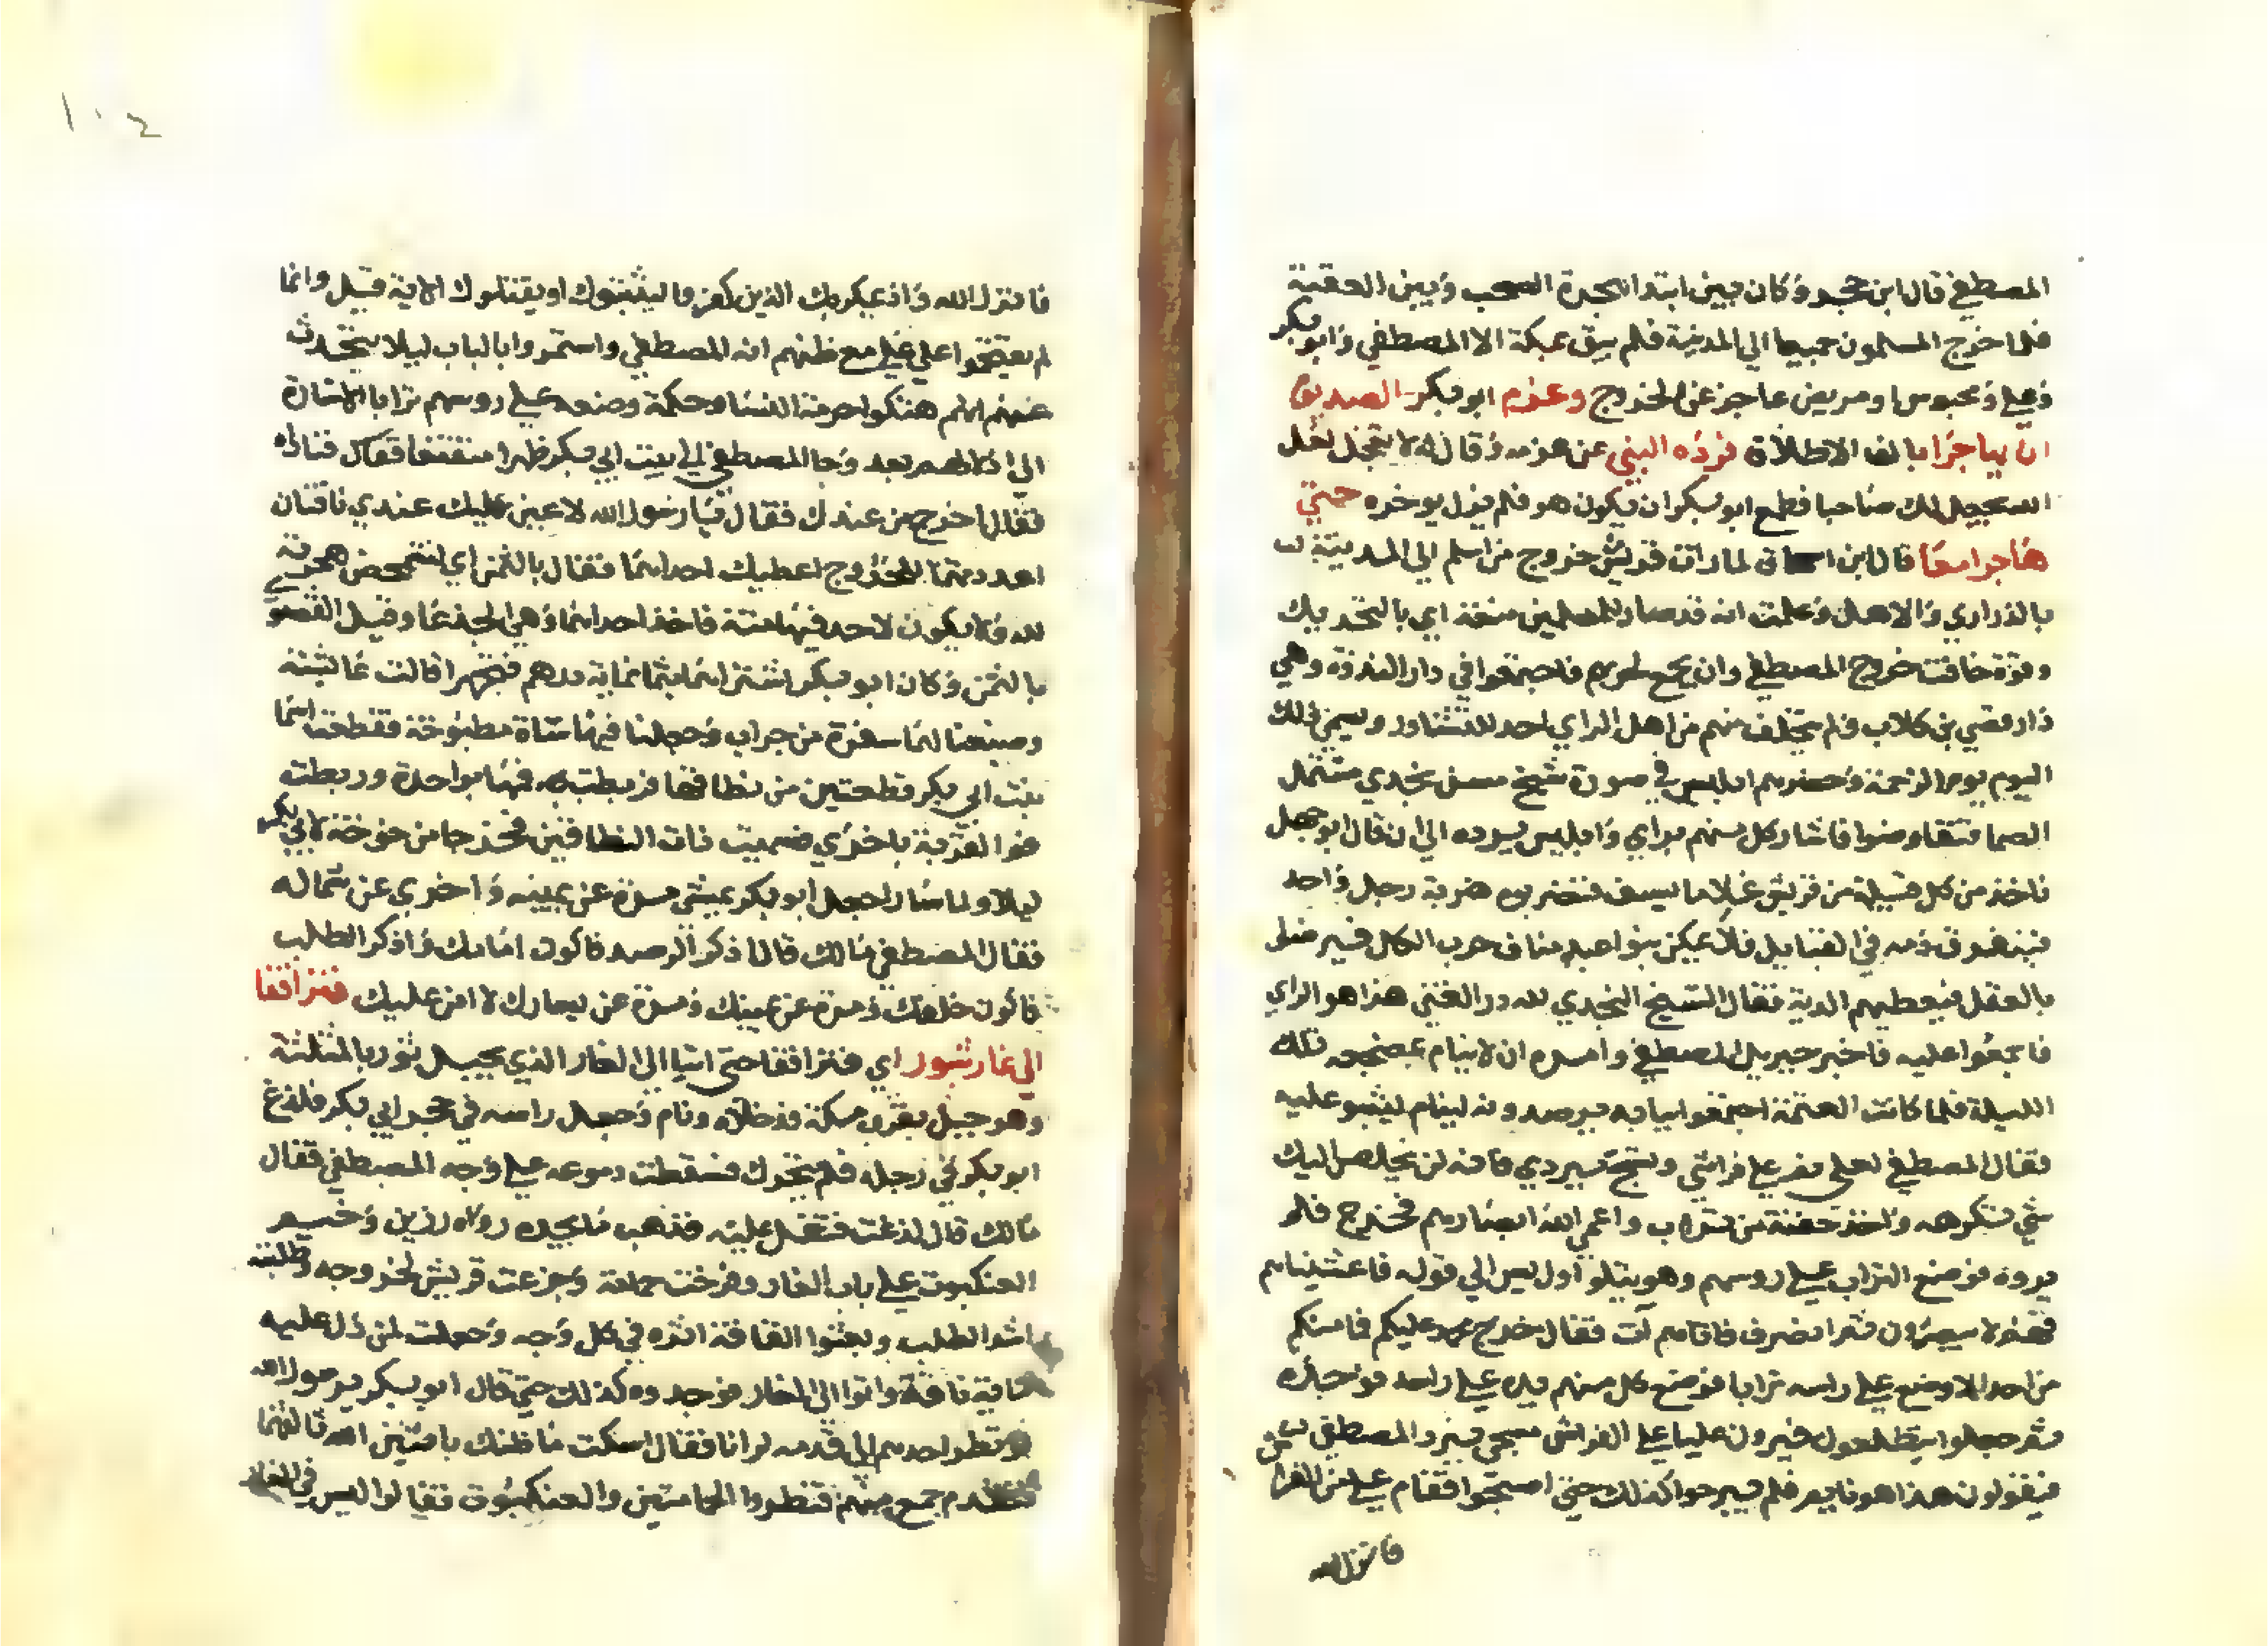 المصطفي قال ابن حجر وكان بين ابتدا هجرة الصحب وبين العقبة
فلما خرج المسلمون جميعا الي المدينة فلم يبق بمكة الا المصطفي وابو بكر
وعلي ومحبوس او مريض عاجز عن الخروج وعزم ابو بكر الصديق
ان يهاجرا بالف الاطلاق فرده النبي عن عزمه وقال له لا تعجل لعل
الله يجعل لك صاحبا فطمع ابو بكر ان يكون هو فلم يزل يوخره حتي
هاجرا معا قال ابن اسحاق لما رات قريش خروج من اسلم الي المدينة
بالذراري والاهل وعلمت انه قد صار للمسلمين منعة اي بالتحريك
وقوة خافت خروج المصطفي وان يجمع لحربهم فاجتمعوا في دار الندوة وهي
دار قصي بن كلاب فلم يتخلف منهم من اهل الراي احد للتشاور ويسمي ذلك
اليوم يوم الزحمة وحضرهم ابليس في صورة شيخ مسن نجدي مشتمل
الصما فتفاوضوا فاشار كل منهم براي وابليس يرده الي ان قال ابو جهل
ناخذ من كل قبيلة من قريش غلاما بسيف فنضربه ضربة رجل واحد
فيتفرق دمه في القبايل فلا يمكن بنو عبد مناف حرب الكل فيرضوا
بالعقل فيعطيهم الدية فقال الشيخ النجدي لله در الفتي هذا هو الراي
فاجمعوا عليه فاخبر جبريل المصطفي وامره ان لا ينام بمضجعه تلك
الليلة فلما كانت العتمة اجتمعوا ببابه يرصدونه لينام ليثبو عليه
فقال المصطفي لعلي نم علي فراشي وتسج ببردي فانه لن يخلص اليك
شي تكرهه واخذ حفنة من تراب واعمي الله ابصارهم فخرج فلم
يروه فوضع التراب علي روسهم وهو يتلو اول يس الي قوله فاغشيناهم
فهم لا يبصرون ثم انصرف فاتاهم آت فقال خرج محمد عليكم فما منكم
من احد الا وضع علي راسه ترابا فوضع كل منهم يده علي راسه فوجده
ثم جعلوا يتطلعون فيرون عليا علي الفراش مسجي ببرد المصطفي
فيقولون هذا هو نايم فلم يبرحوا كذلك حتي اصبحوا فقام علي من الفرا
فانزل الله
١٠٤
فانزل الله واذ يمكر بك الذين كفروا ليثبتوك او يقتلوك الاية قيل وانما
لم يقتحموا علي علي مع ظنهم انه المصطفي واستمروا بالباب ليلا يتحدث
عنهم انهم هتكوا حرمة النسا وحكمة وضعه علي روسهم ترابا الاشارة
الي اذلالهم بعد وجا المصطفي الي بيت ابي بكر ظهرا متقنعا فقال
فقال اخرج من عندك فقال يا رسول الله لا عين عليك عندي ناقتان
اعددتهما للخروج اعطيك احداهما فقال بالثمن اي لتتمحض هجرته
لله ولا يكون لاحد فيها منة فاخذ احداهما وهي الجدعا وقيل القصوا
بالثمن وكان ابو بكر اشتراهما بثمانماية درهم فتجهزا قالت عايشة
وصنعنا لهما سفرة من جراب وجعلنا فيها شاة مطبوخة فقطعت اسما
بنت ابي بكر قطعتين من نطاقها فربطت فمها بواحدة وربطت
فم القربة باخري فسميت ذات النطاقين فخرجا من خوخة لابي بكر
ليلا ولما سارا جعل ابو بكر يمشي مرة عن يمينه واخري عن شماله
فقال المصطفي مالك قال اذكر الرصد فاكون امامك واذكر الطلب
فاكون خلفك ومرة عن يمينك ومرة عن يسارك لا امن عليك فترافقا
الي غار بثور اي فترافقا حتي اتيا الي الغار الذي بجبل ثور بالمثلثة
وهو جبل بقرب مكة فدخلاه ونام وجعل راسه في حجر ابي بكر فلدغ
ابو بكر في رجله فلم يتحرك فسقطت دموعه علي وجه المصطفي فقال
مالك قال لدغت فتفل عليه فذهب ما يجده رواه رزين وخيم
العنكبوت علي باب الغار وفرخت حمامة وجزعت قريش لخروجه وطلبته
اشد الطلب وبعثوا القافة اثره في كل وجه وجعلت لمن دل عليه
ماية ناقة واتوا الي الغار فوجدوه كذلك حتي قال ابو بكر يرسول الله
لو نظر احدهم الي قدمه لرانا فقال اسكت ما ظنك باثنين الله ثالثهما
فتقدم جمع منهم فنظروا الحمامتين والعنكبوت فقالوا ليس في الغار